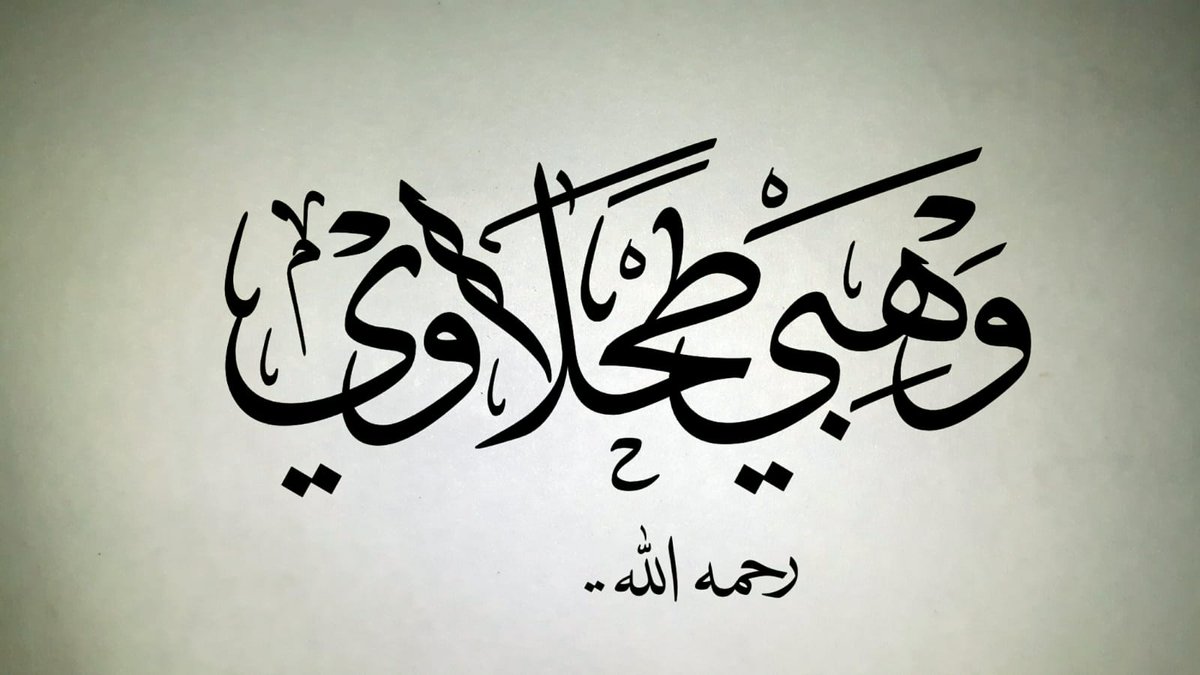 وَهْبِي طَحْلَاوِي
رحمه الله..